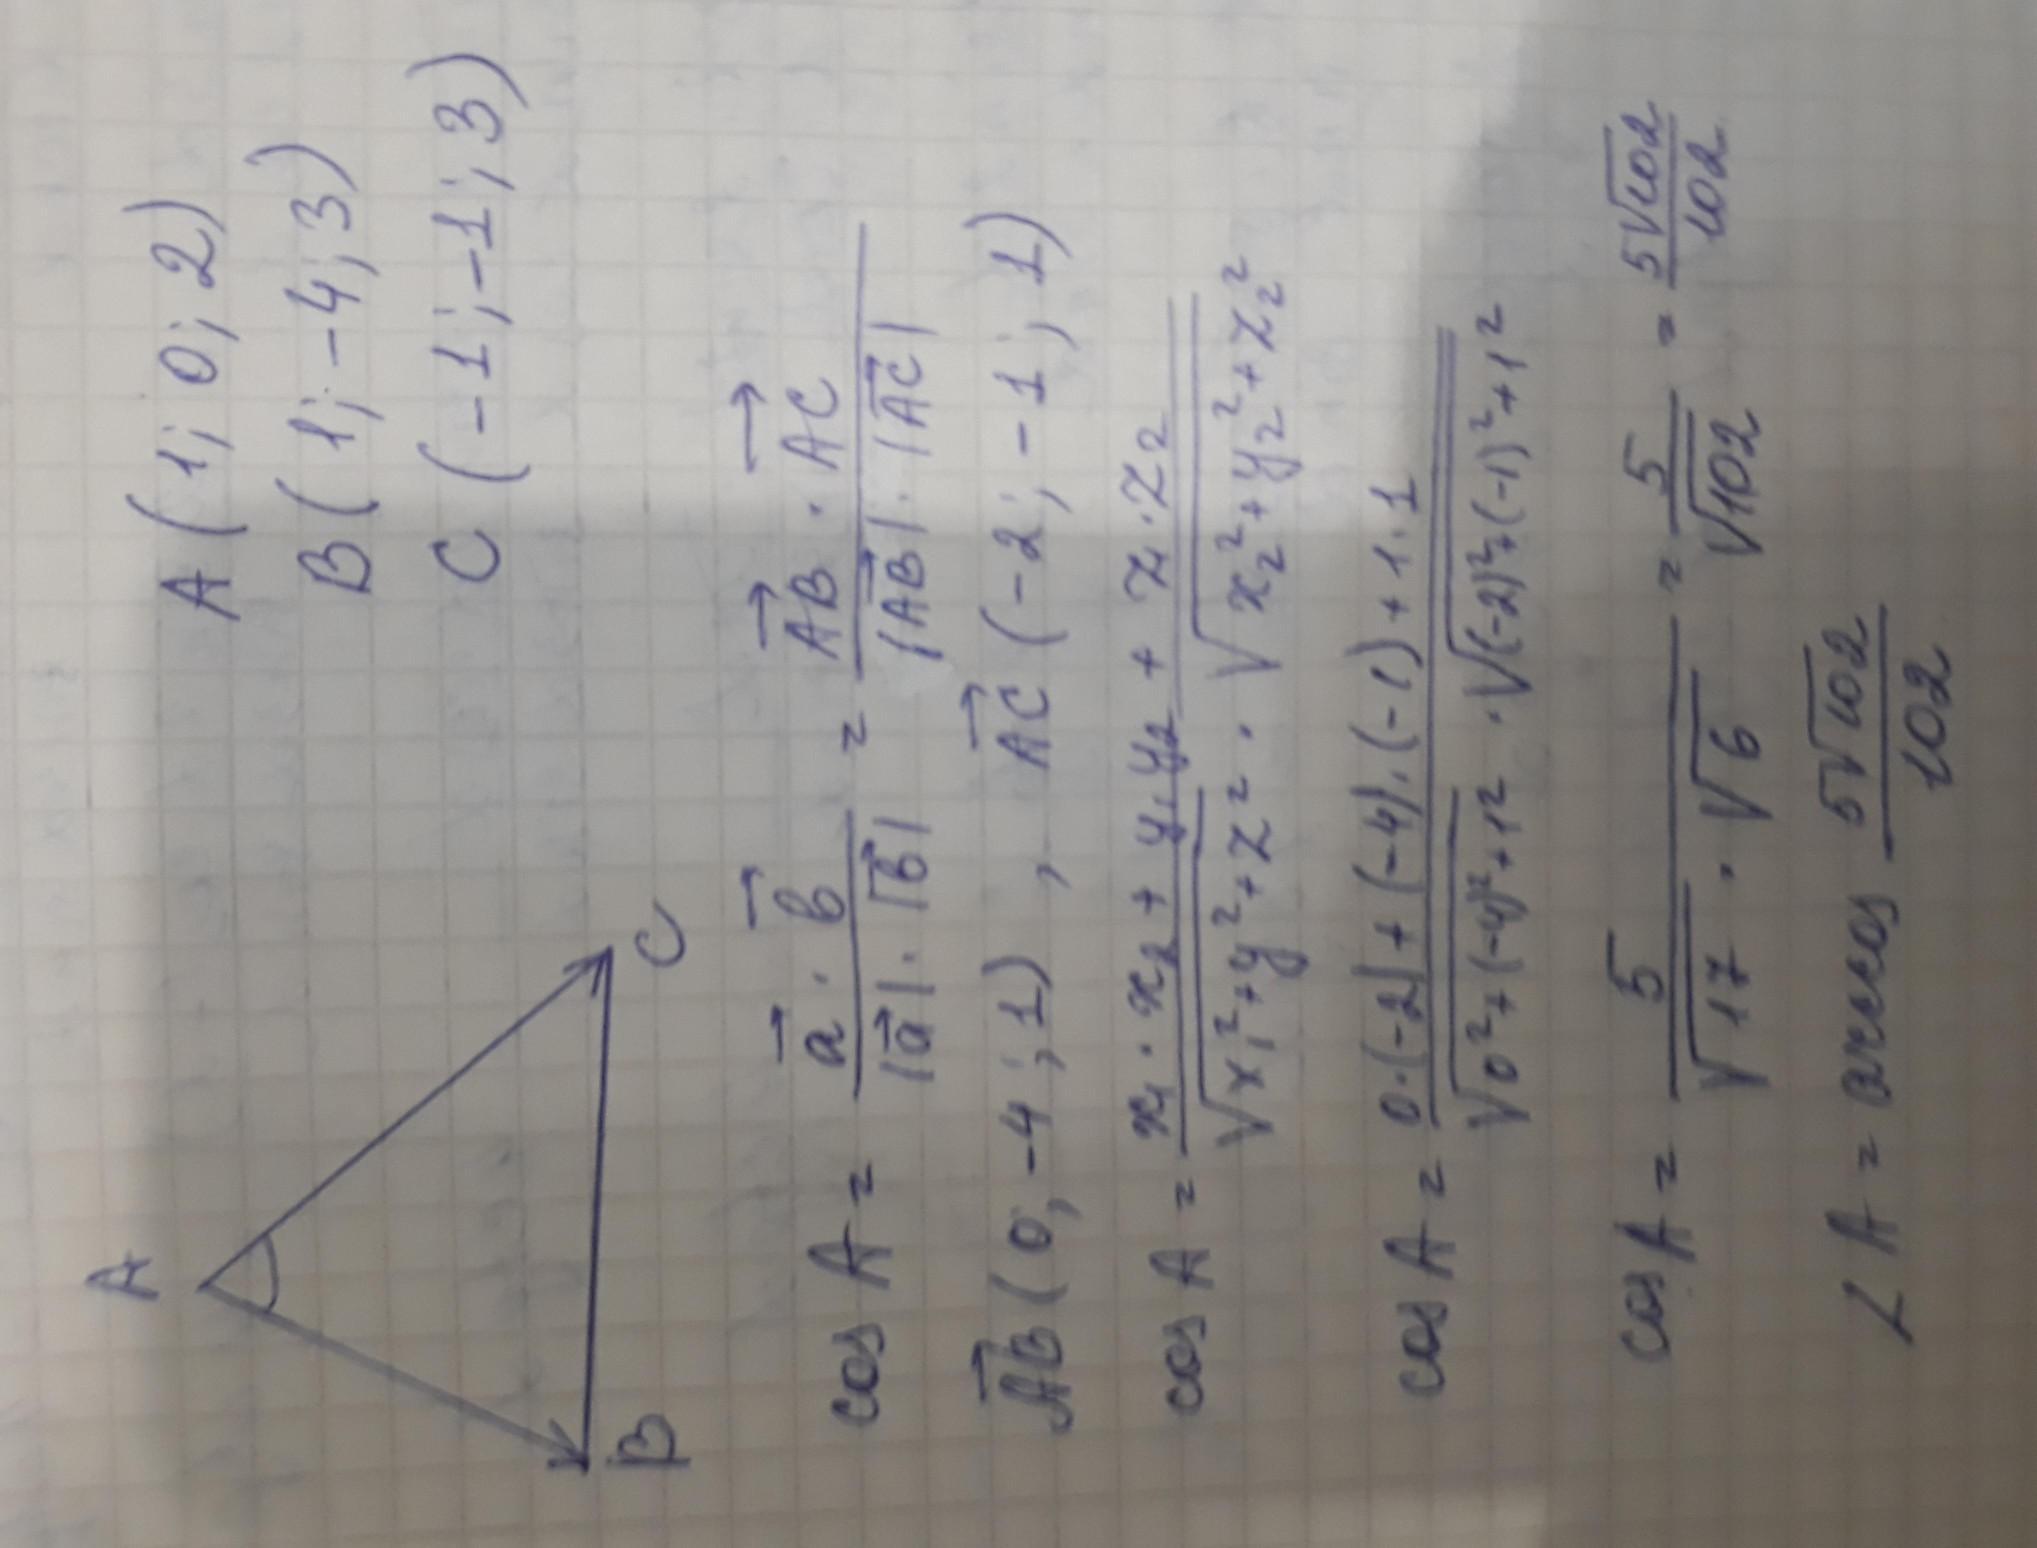 A
B
C
A (1; 0; 2)
B (1; -4; 3)
C (-1; -1; 3)
cos A = \frac{\vec{a} \cdot \vec{b}}{|\vec{a}| \cdot |\vec{b}|} = \frac{\vec{AB} \cdot \vec{AC}}{|\vec{AB}| \cdot |\vec{AC}|}
\vec{AB} (0; -4; 1) , \vec{AC} (-2; -1; 1)
cos A = \frac{x_1 \cdot x_2 + y_1 y_2 + z_1 \cdot z_2}{\sqrt{x_1^2 + y^2 + z^2} \cdot \sqrt{x_2^2 + y_2^2 + z_2^2}}
cos A = \frac{0 \cdot (-2) + (-4) \cdot (-1) + 1 \cdot 1}{\sqrt{0^2 + (-4)^2 + 1^2} \cdot \sqrt{(-2)^2 + (-1)^2 + 1^2}}
cos A = \frac{5}{\sqrt{17} \cdot \sqrt{6}} = \frac{5}{\sqrt{102}} = \frac{5\sqrt{102}}{102}
∠ A = arccos \frac{5\sqrt{102}}{102}